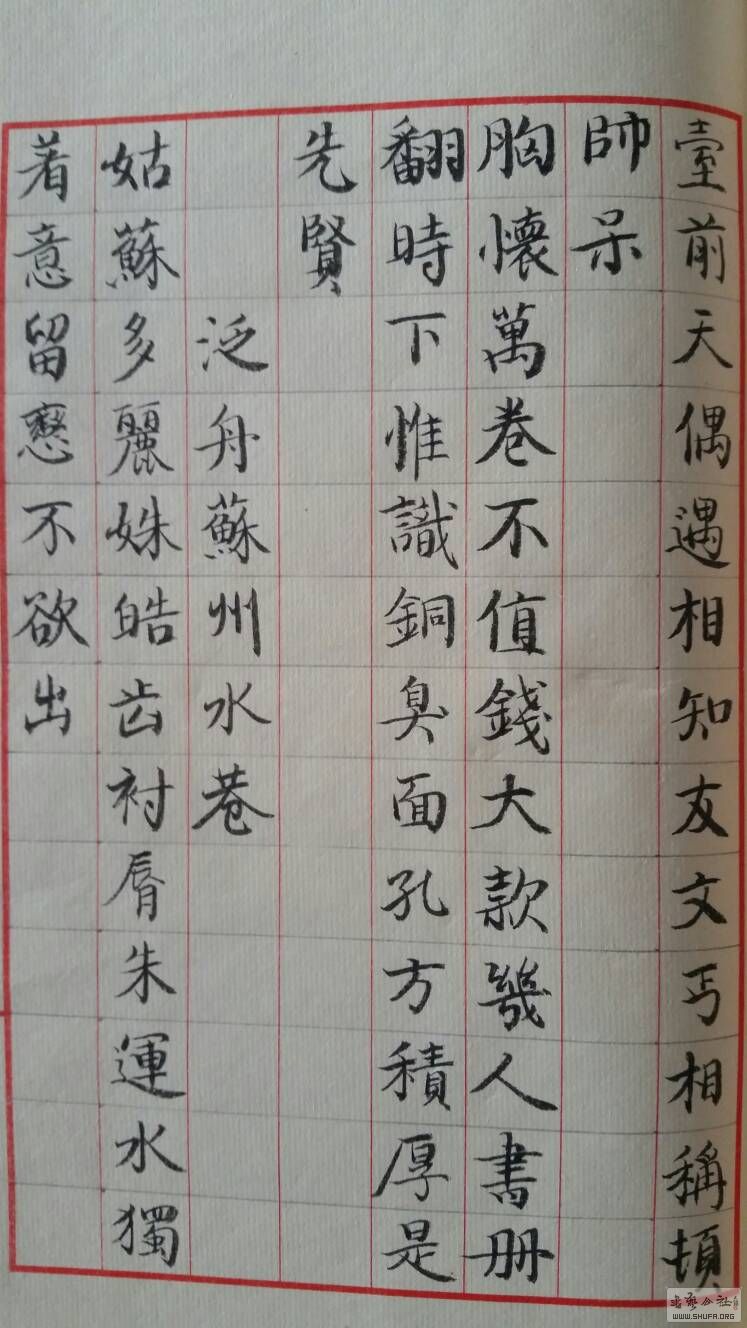 臺前天偶遇相知友文丐相稱頓
帥呆
胸懷萬卷不值錢大款幾人書册
翻時下惟識銅臭面孔方積厚是
先賢
泛舟蘇州水巷
姑蘇多麗姝皓齿衬脣朱運水獨
着意留戀不欲出
WWW.SHUFA.ORG